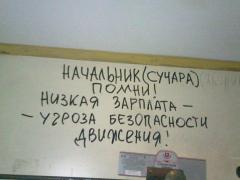 НАЧАЛЬНИК(СУЧАРА)
ПОМНИ!
НИЗКАЯ ЗАРПЛАТА –
– УГРОЗА БЕЗОПАСНОСТИ
ДВИЖЕНИЯ!